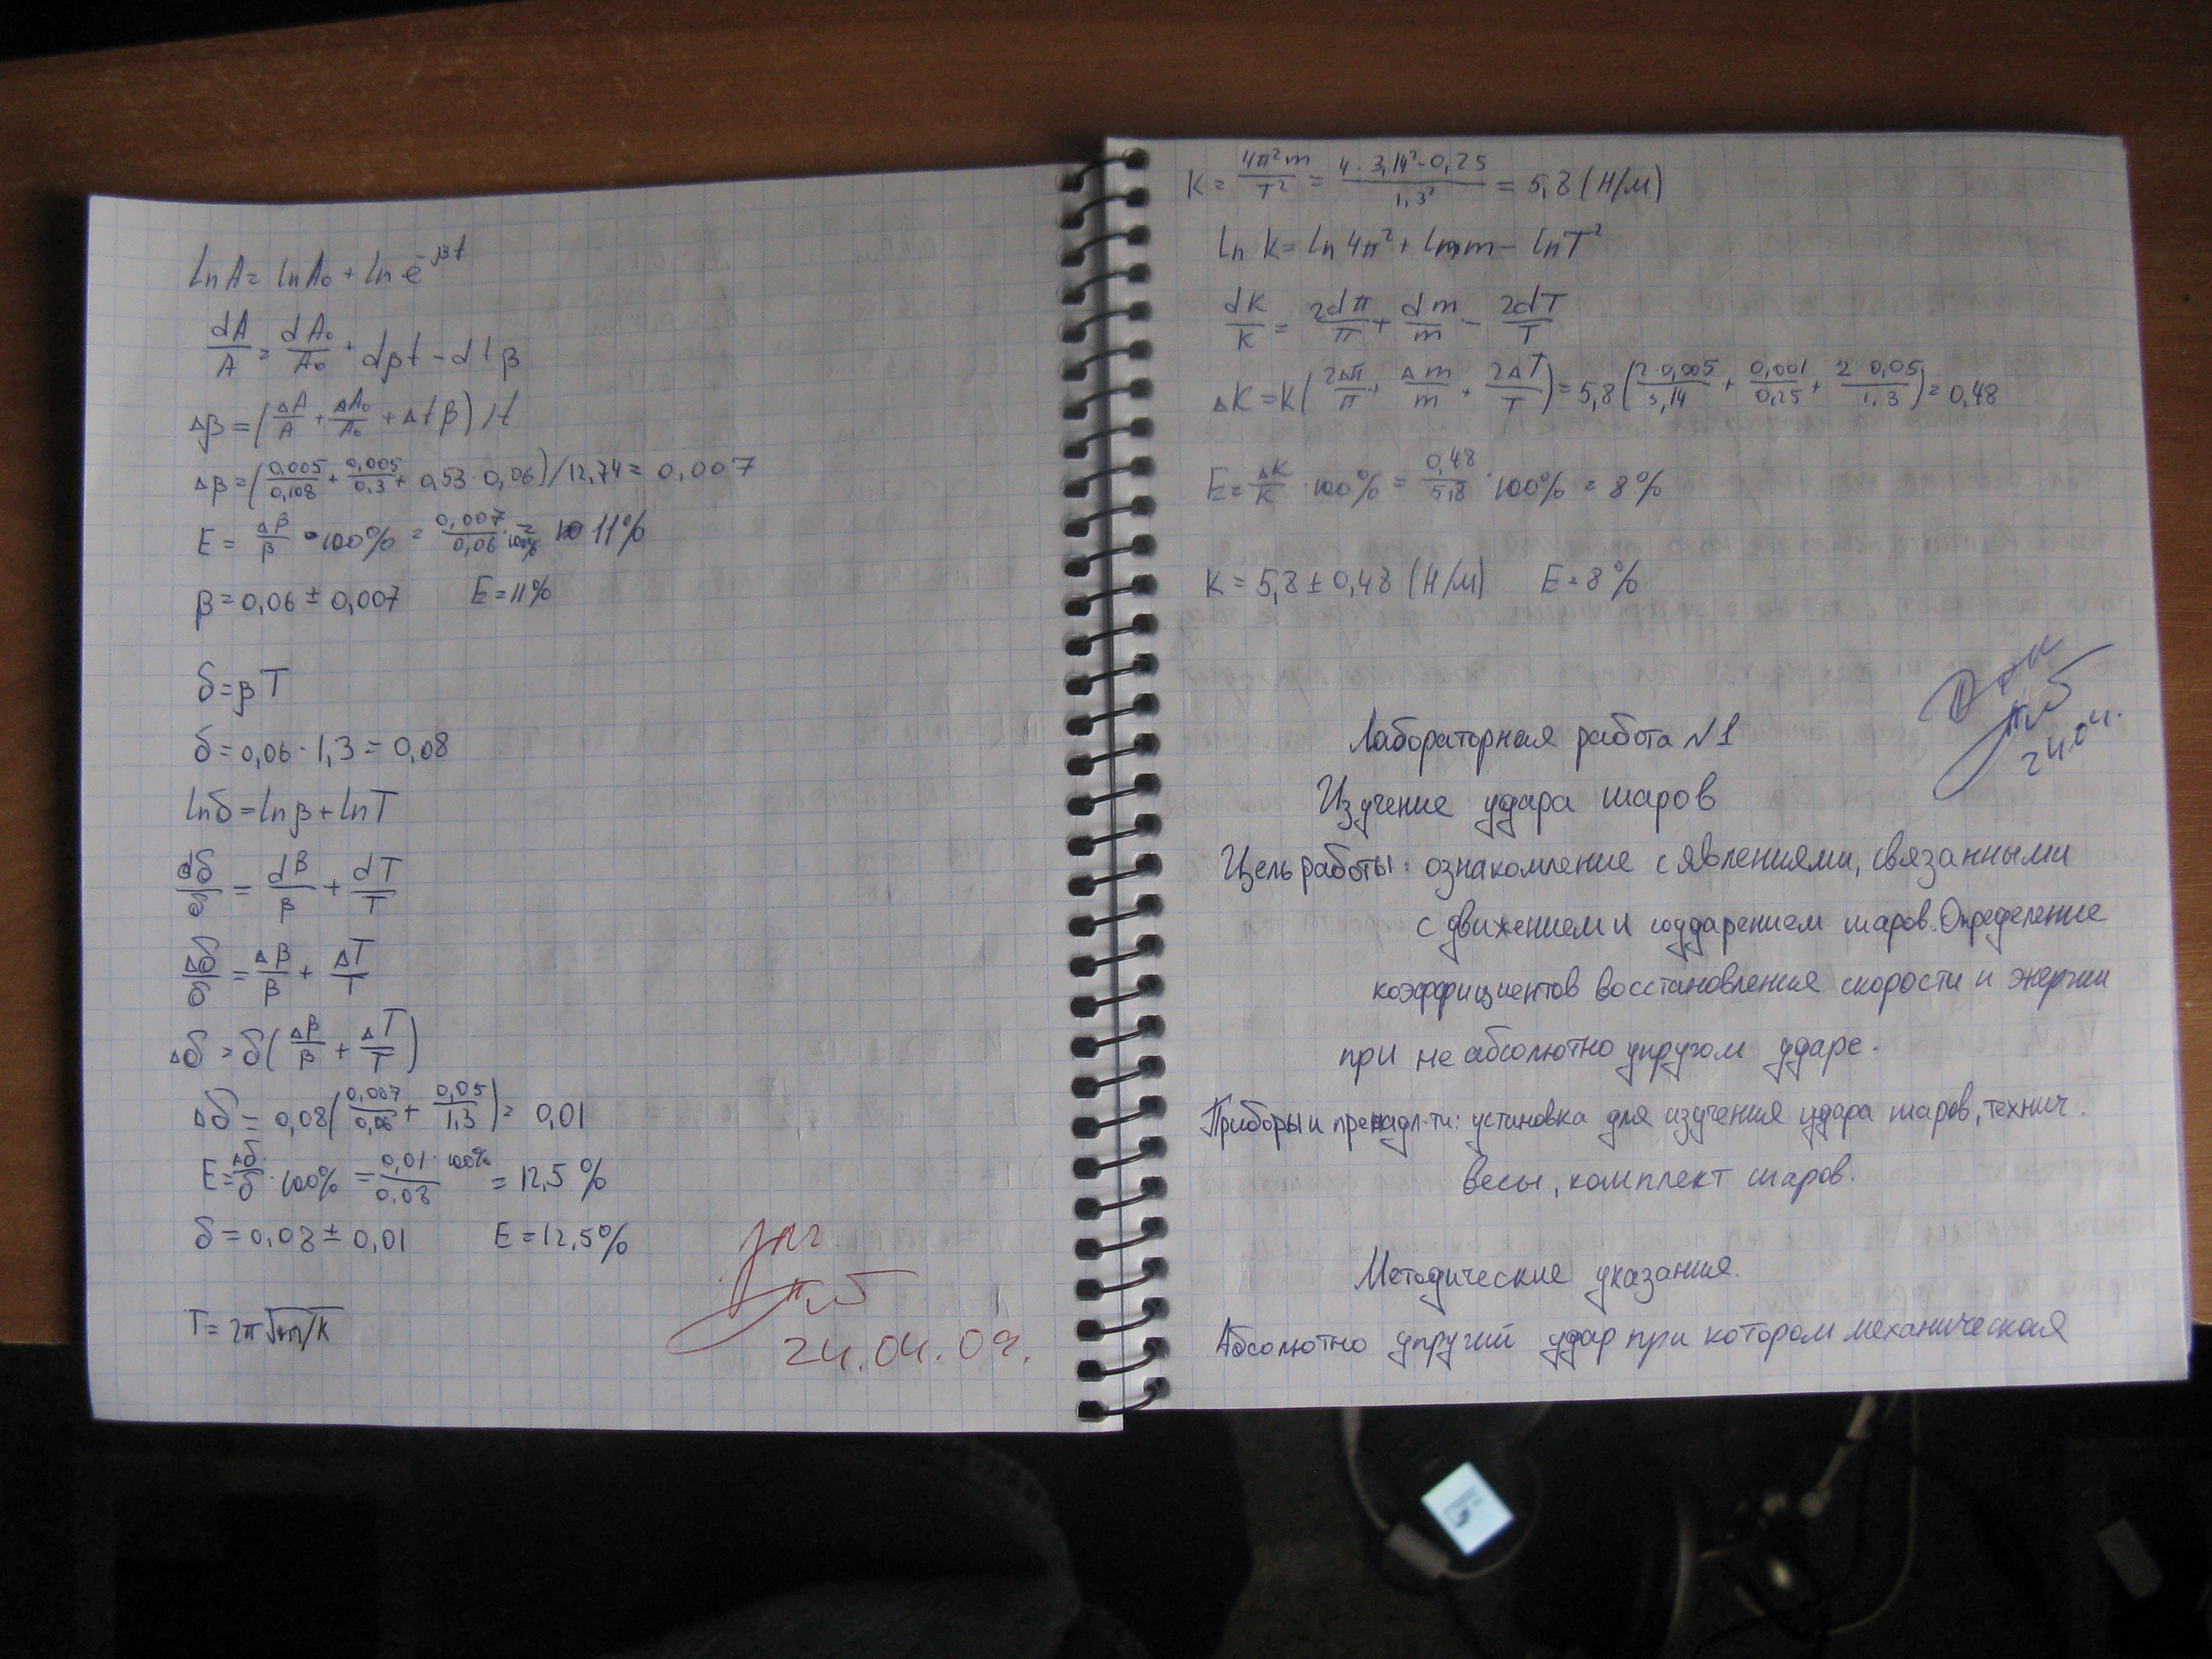 ln A = ln A₀ + ln e^-βt
dA/A = dA₀/A₀ + dβt - dtβ
Δβ = (ΔA/A + ΔA₀/A₀ + Δtβ)/t
Δβ = (0,005/0,108 + 0,005/0,3 + 0,53·0,06)/12,74 = 0,007
E = Δβ/β · 100% = 0,007/0,06 · 100% = 11%
β = 0,06 ± 0,007 E = 11%
δ = βT
δ = 0,06 · 1,3 = 0,08
lnδ = lnβ + lnT
dδ/δ = dβ/β + dT/T
Δδ/δ = Δβ/β + ΔT/T
Δδ = δ(Δβ/β + ΔT/T)
Δδ = 0,08(0,007/0,06 + 0,05/1,3) = 0,01
E = Δδ/δ · 100% = 0,01 · 100%/0,08 = 12,5%
δ = 0,08 ± 0,01 E = 12,5%
T = 2π√m/K
24.04.09.
K = 4π²m/T² = 4 · 3,14² · 0,25/1,3² = 5,8 (Н/м)
ln K = ln 4π² + ln m - ln T²
dK/K = 2dπ/π + dm/m - 2dT/T
ΔK = K(2Δπ/π + Δm/m + 2ΔT/T) = 5,8(2·0,005/3,14 + 0,001/0,25 + 2·0,05/1,3) = 0,48
E = ΔK/K · 100% = 0,48/5,8 · 100% = 8%
K = 5,8 ± 0,48 (Н/м) E = 8%
24.04.
Лабораторная работа №1
Изучение удара шаров
Цель работы: ознакомление с явлениями, связанными
с движением и соударением шаров. Определение
коэффициентов восстановления скорости и энергии
при не абсолютно упругом ударе.
Приборы и принадл-ти: установка для изучения удара шаров, технич.
весы, комплект шаров.
Методические указания.
Абсолютно упругий удар при котором механическая